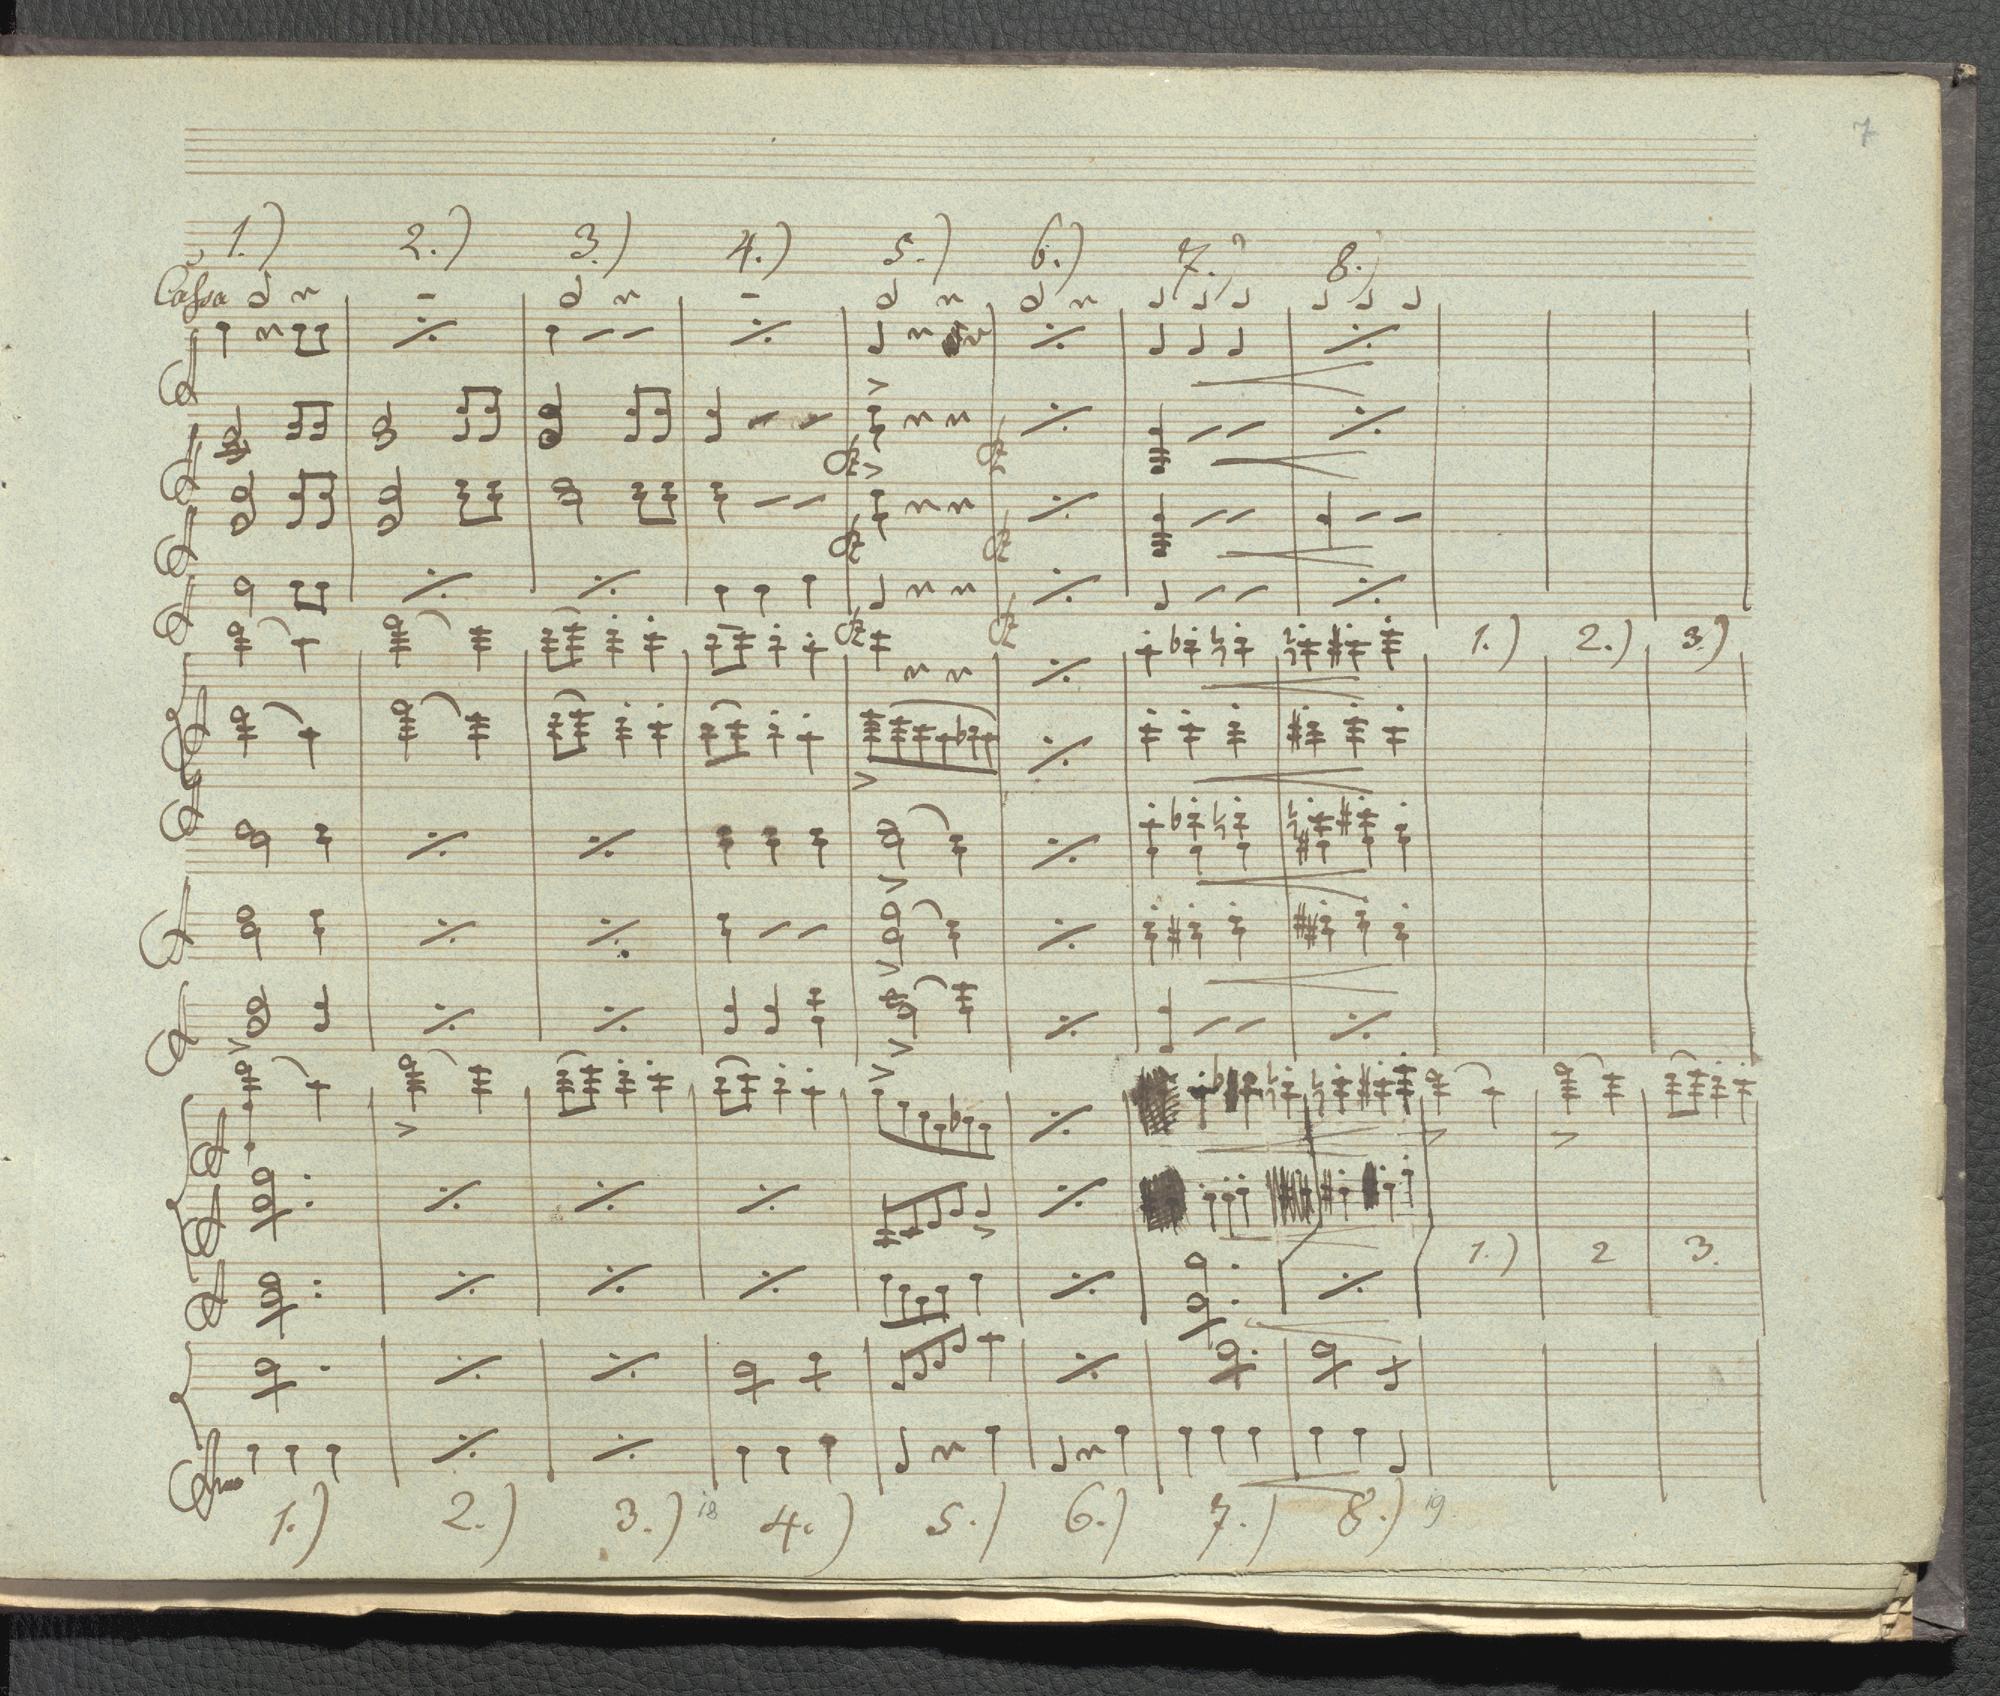 7
1.) 2.) 3.) 4.) 5.) 6.) 7.) 8.)
Cassa
1.) 2.) 3.)
1.) 2 3.
1.) 2.) 3.) 18 4.) 5.) 6.) 7.) 8.) 19